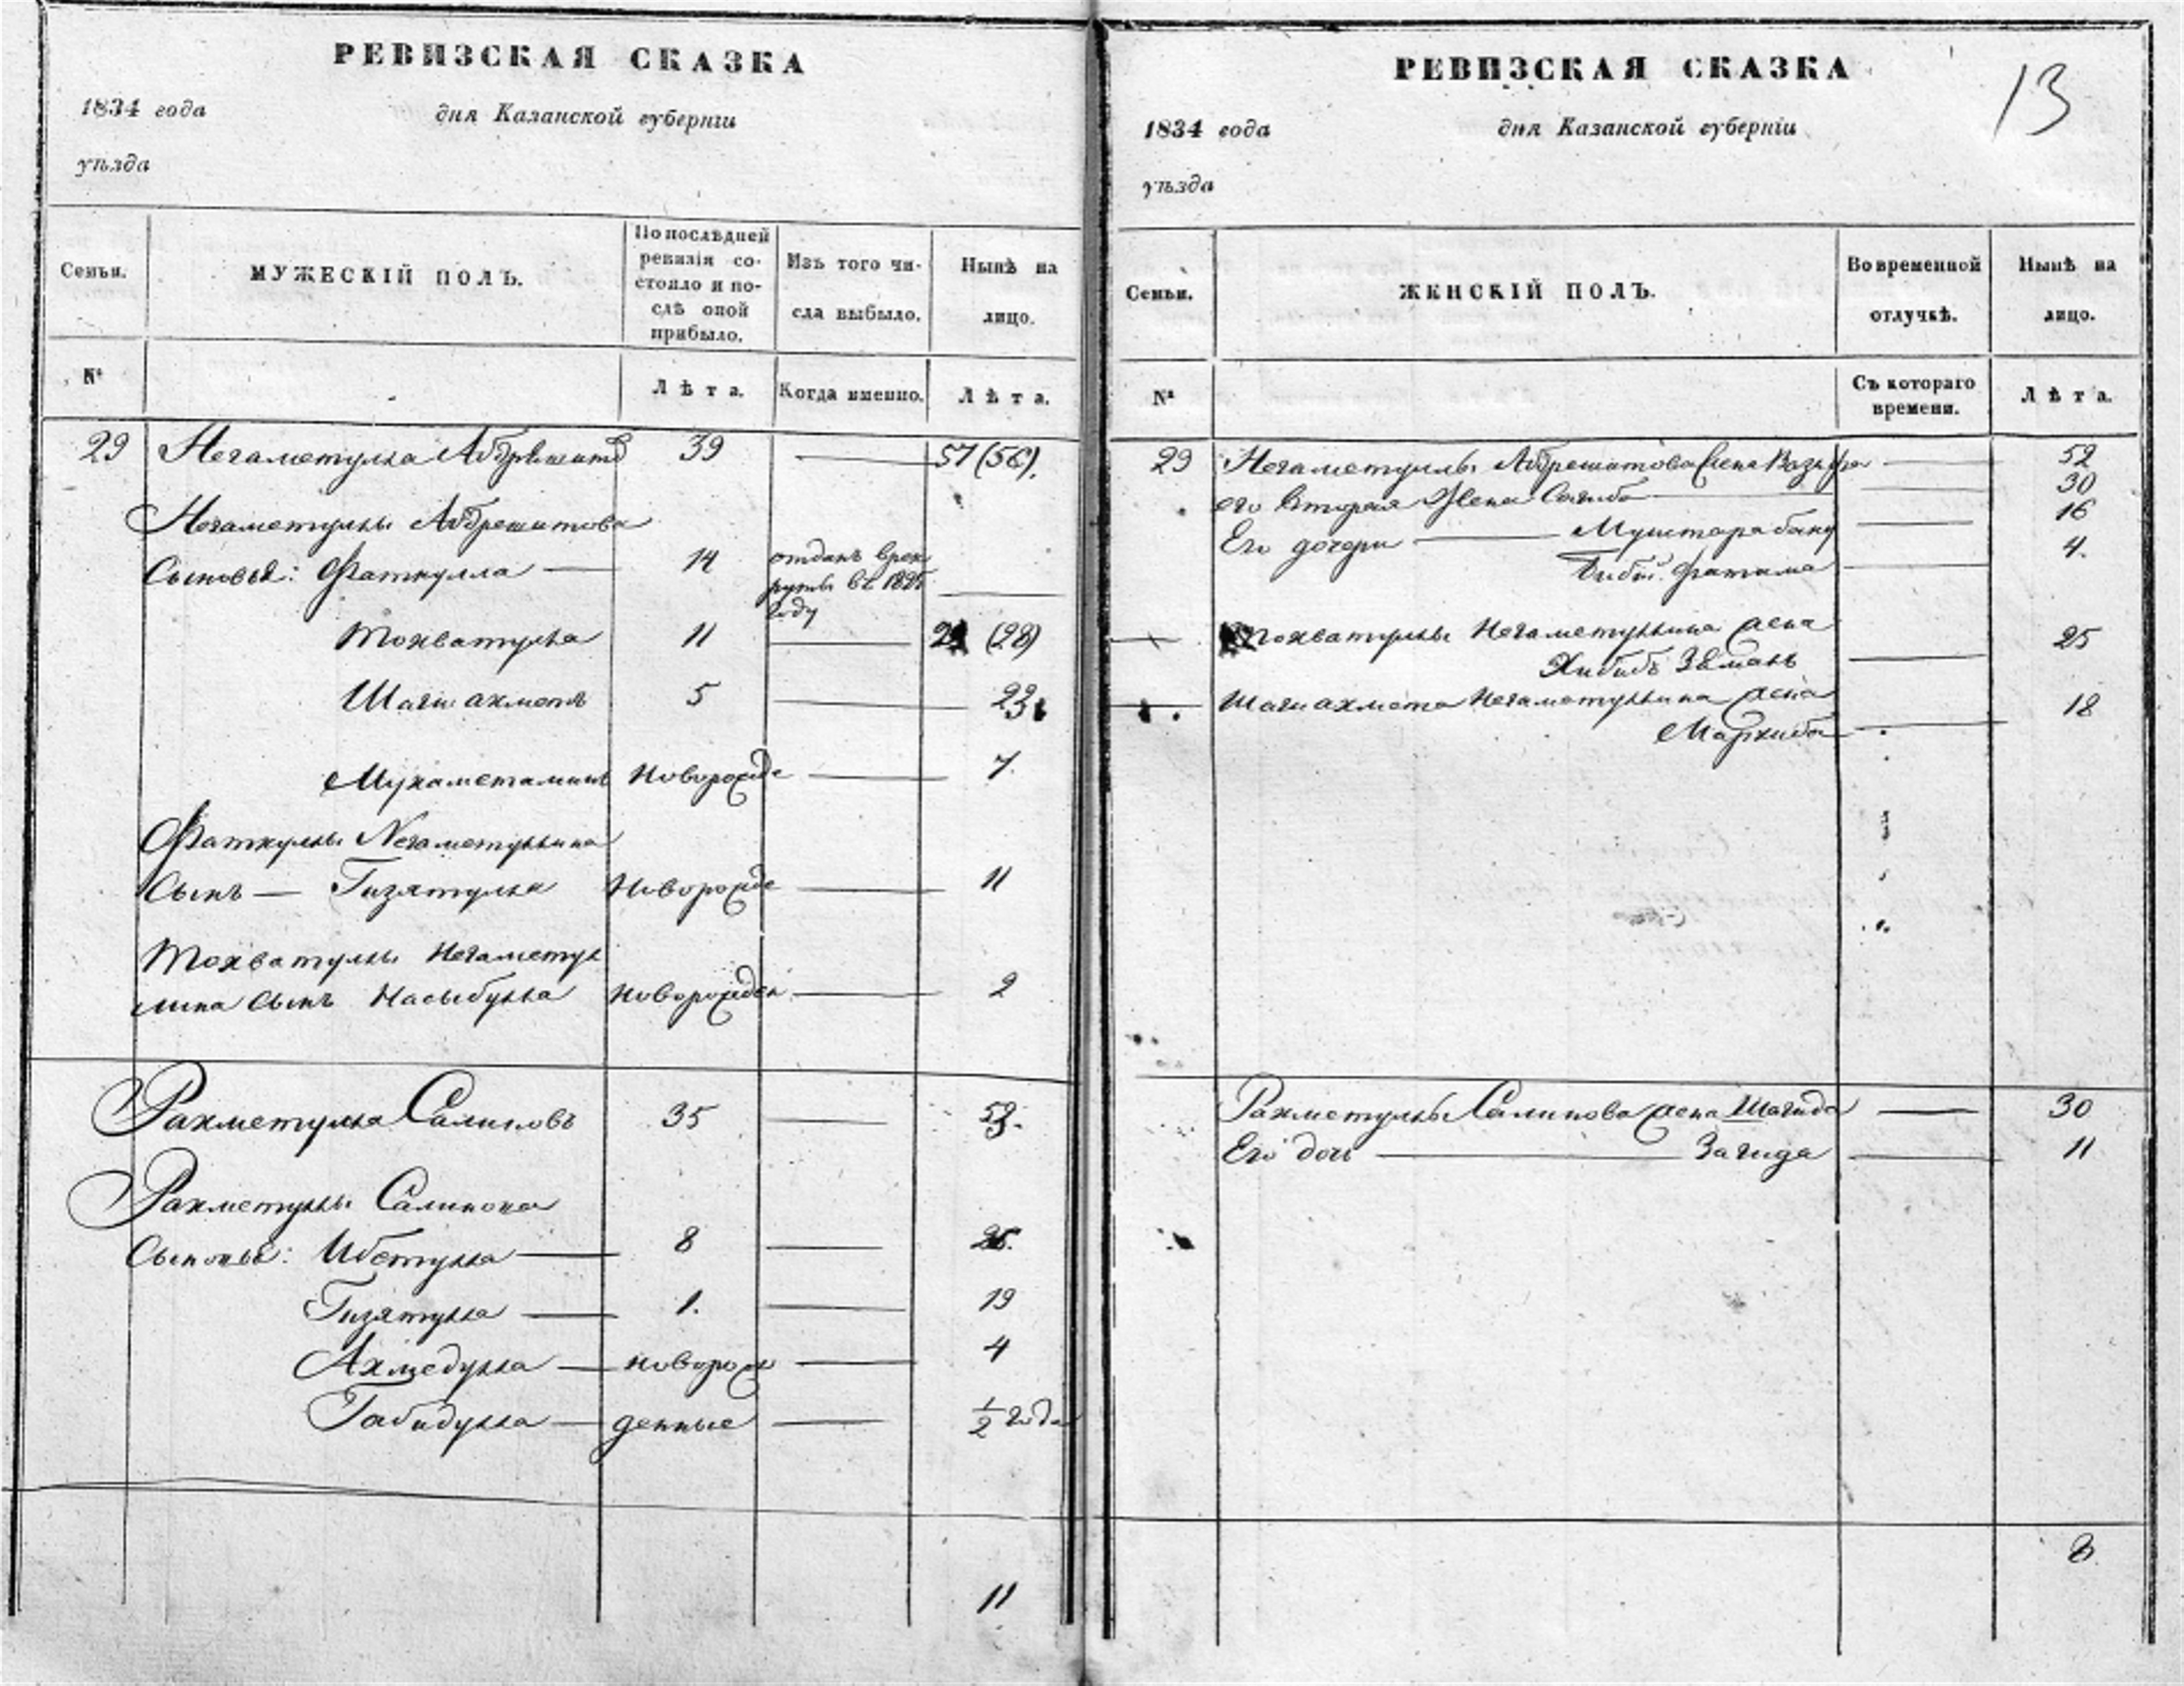 РЕВИЗСКАЯ СКАЗКА
1834 года
дня Казанской губерніи
уѣзда
Семьи.
МУЖЕСКІЙ ПОЛЪ.
По послѣдней
ревизіи со-
стояло и по-
слѣ оной
прибыло.
Изъ того чи-
сла выбыло.
Нынѣ на
лицо.
№
Лѣта.
Когда именно.
Лѣта.
29 Негаметулла 39 57 (56).
Негаметуллы Абдрешитова
Сыновья: Фаткулла 14 отданъ врек
руты въ
году
Тохватулла 11 (28)
Шагиахметъ 5 23
Мухаметаминъ Новорожде 7.
Фаткуллы Негаметуллина
Сынъ — Гизятулла Новорожде 11
Тохватуллы Негаметул
лина сынъ Насыбулла новорожден 2
Рахметулла Салиховъ 35 53.
Рахметуллы Салихова
Сыновья: Ибетулла 8
Гизятулла 1. 19
Ахмедулла — новорож 4
Габидулла — денные 1/2 года
11
РЕВИЗСКАЯ СКАЗКА
13
1834 года
дня Казанской губерніи
уѣзда
Семьи.
ЖЕНСКІЙ ПОЛЪ.
Во временной
отлучкѣ.
Нынѣ на
лицо.
№
Съ котораго
времени.
Лѣта.
29 Негаметуллы Абдрешитова жена 52
его вторая жена Сагиба 30
Его дочери — Муштарабану 16
Биби Фатима 4.
Тохватуллы Негаметуллина жена
Хабибъ Земалъ 25
Шагиахмета Негаметуллина жена
Маргиба 18
Рахметуллы Салихова жена Шагида 30
Его дочь — Загида 11
8